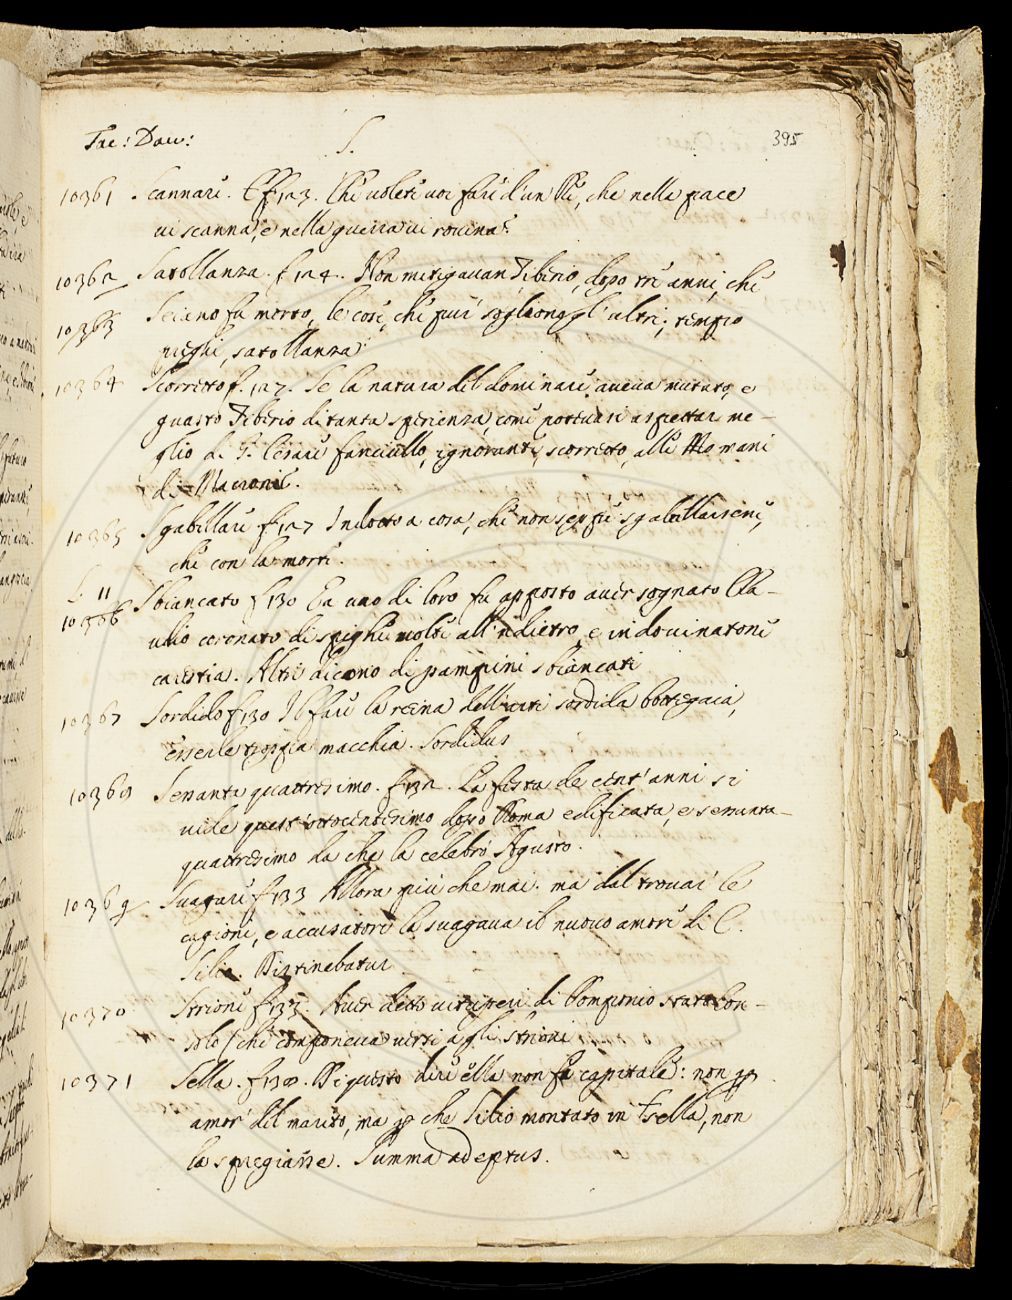 Tac: Dau:
S.
395
10361 Scannare. C. f 123. Che uolete uoi fare d'un Re, che nella pace
ui scanna, e nella guerra ui rouina?
10362 Satollanza. f 124. Non mitigauan Tiberio, dopo tre anni, che
10363 Seiano fu morto, le cose, che fare sogliono gl'altri, tempo
prieghi, satollanza
10364 Scorretto f. 127. Se la natura del dominare aueua mutato, e
guasto Tiberio di tanta sperienza, come potersi aspettar me-
glio di G. Cesare fanciullo, ignorante, scorretto, alle mani
di Macrone.
10365 Sgabellare f 127 Indotto a cosa, che non seppe sgabellarsene,
che con la morte.
L. 11
10366 Sbiancato f 130 Ea uno di loro fu apposto auer sognato Cla-
udio coronato di spighe uolte all'indietro, e indouinatone
carestia. Altri dicono di pampini sbiancati
10367 Sordido f 130 Il fare la reina dell'arti sordida bottegaia,
esserle troppa macchia. Sordidus
10368 Sessanta quattresimo. f 132. La festa de cent'anni si
uide quest'ottocentesimo dopo Roma edificata, e sessanta-
quattresimo da che la celebrò Agusto.
10369 Suagare f 133 Allora più che mai. ma dal trouare le
cagioni, e accusatori la suagaua il nuouo amore di C.
Silio. Distinebatur.
10370 Strioni f 133. Auer detto uituperi di Pomponio stato Con-
solo (che componeua uersi agli strioni
10371 Sella. f 138. Di questo dire ella non fe capitale: non p
amor del marito, ma p che Silio montato in sella, non
la spregiasse. Summa adeptus.